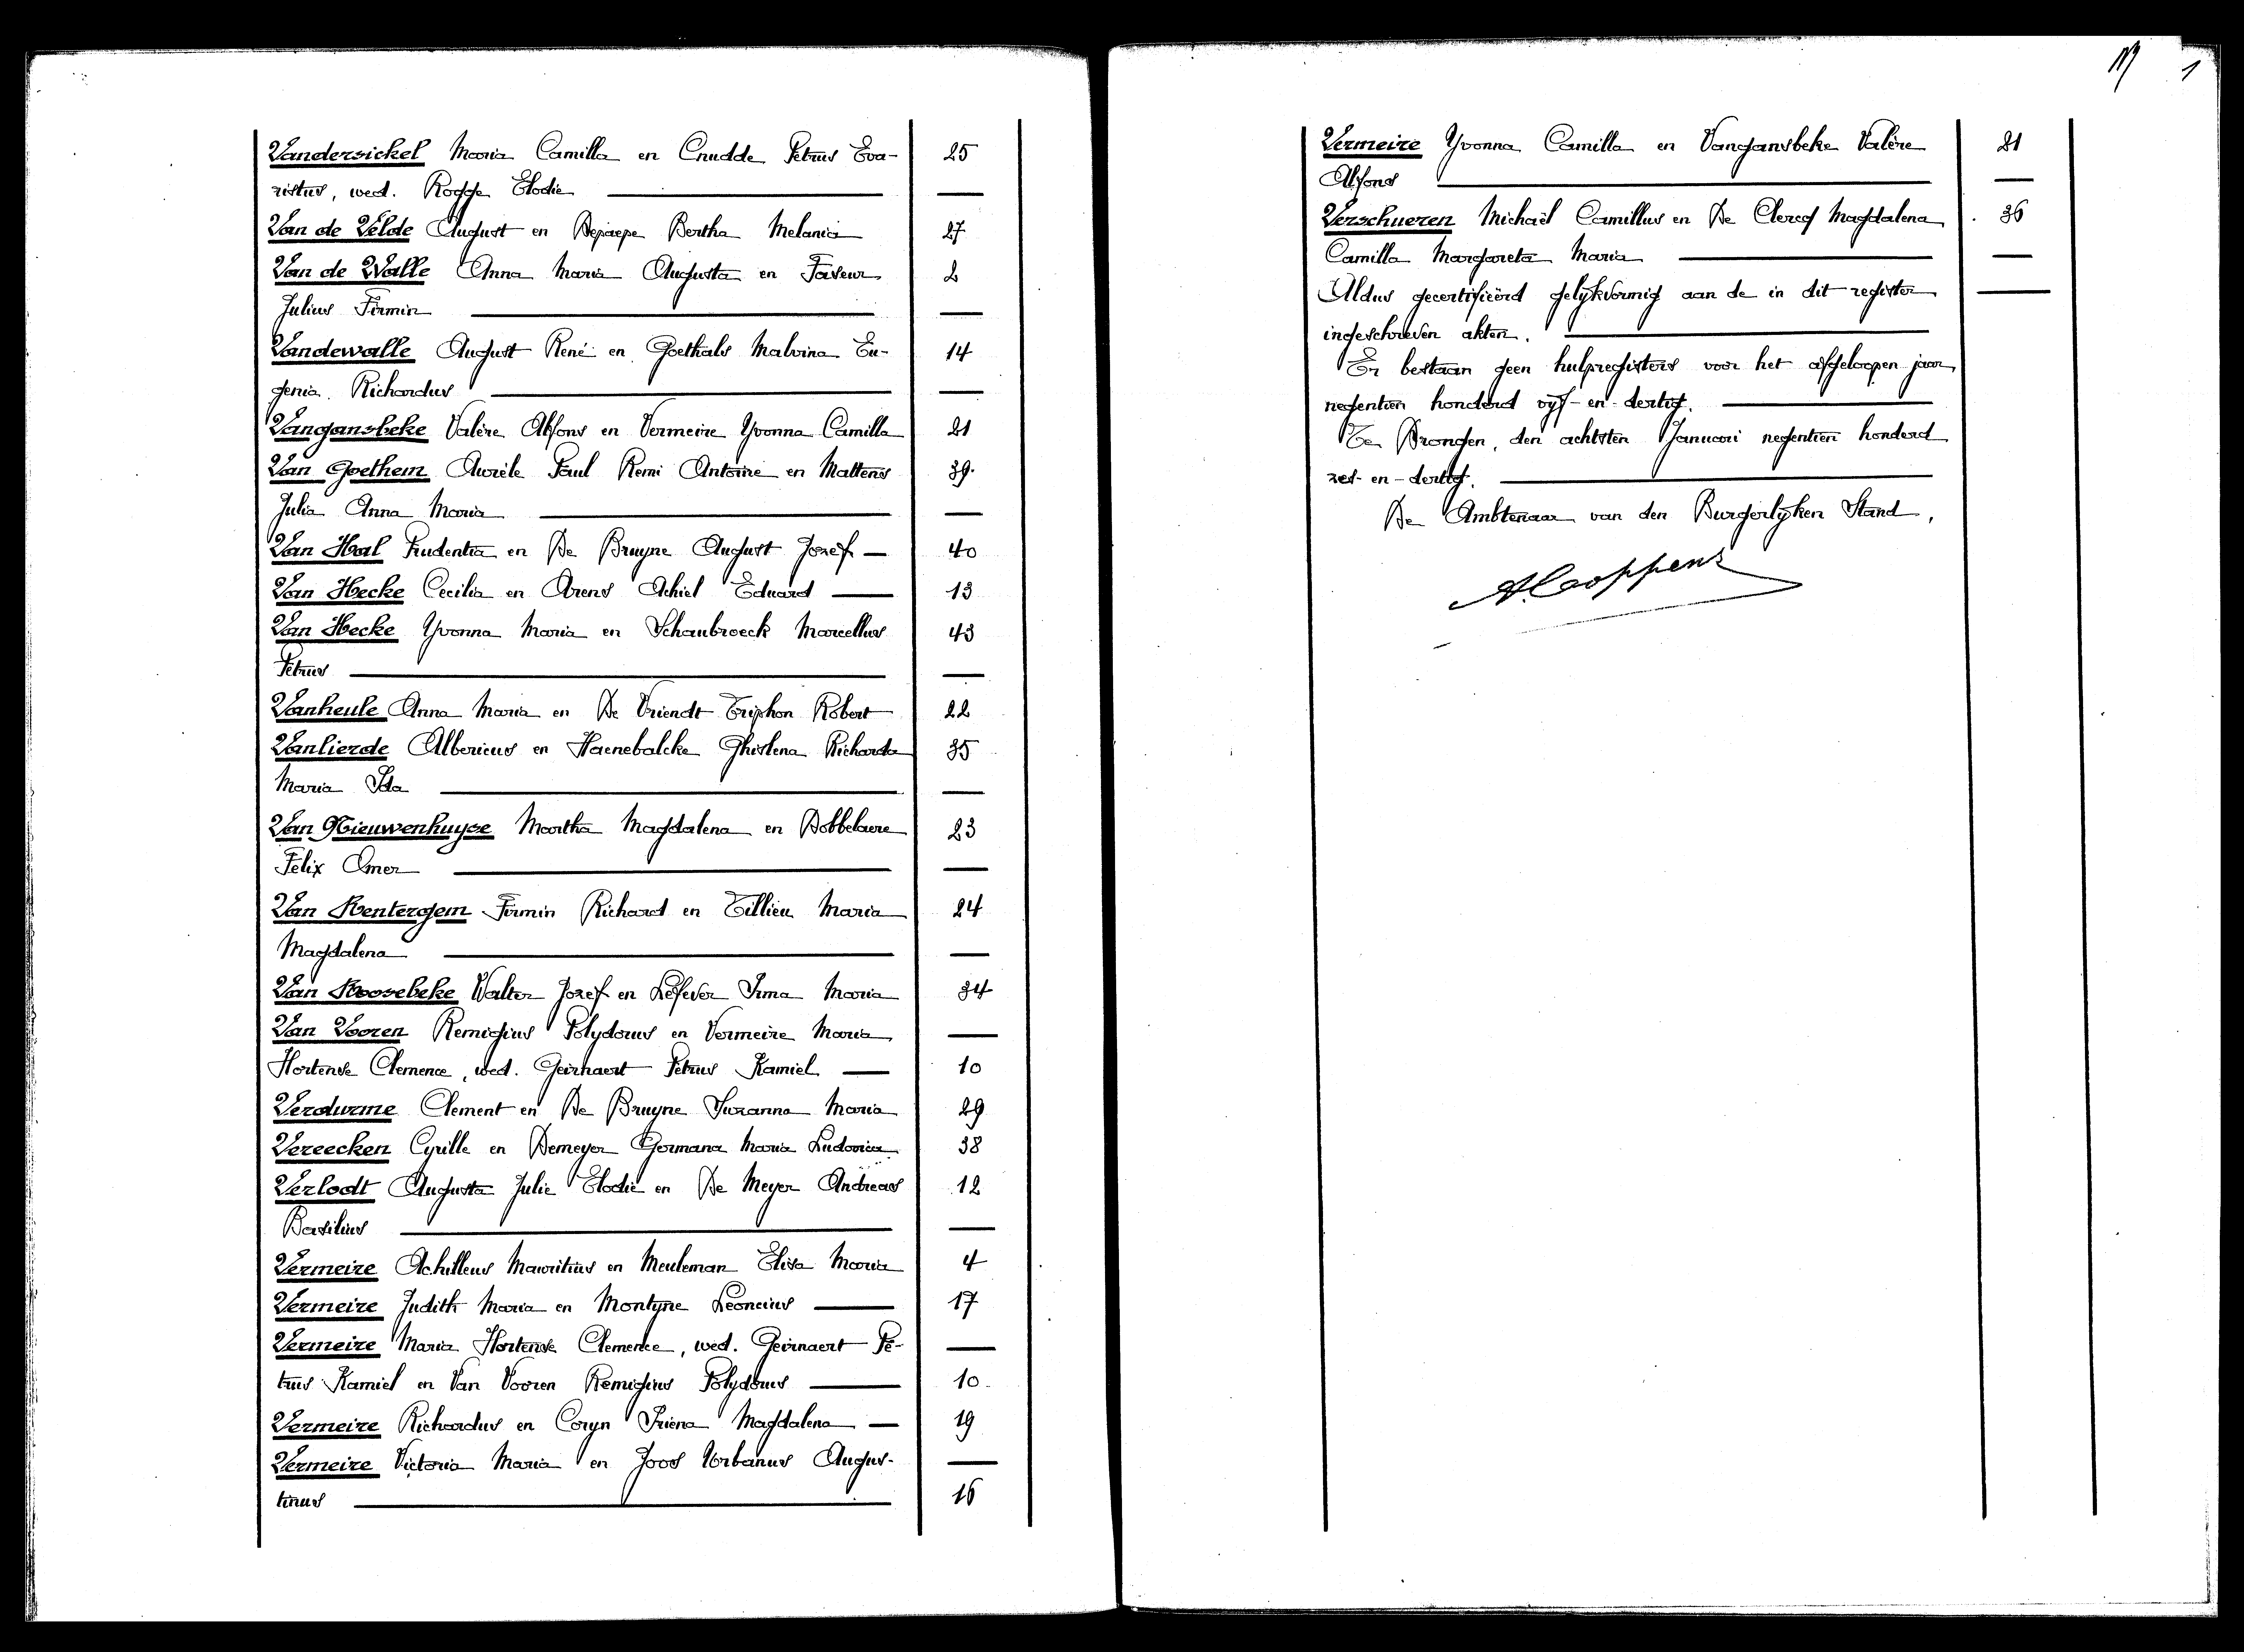 Vandersickel Maria Camilla en Cnudde Petrus Eva- 25
ristus, wed. Rogge Elodie —
Van de Velde August en Depaepe Bertha Melania 27
Van de Walle Anna Maria Augusta en Faseur 2
Julius Firmin —
Vandewalle August René en Goethals Malvina Eu- 14
genia Richardus —
Vangansbeke Valère Alfons en Vermeire Yvonna Camilla 21
Van Goethem Aurèle Paul Remi Antoine en Mattens 39
Julia Anna Maria —
Van Hal Prudentia en De Bruyne August Jozef — 40
Van Hecke Cecilia en Arens Achiel Eduard — 13
Van Hecke Yvonna Maria en Schaubroeck Marcellus 43
Petrus —
Vanheule Anna Maria en De Vriendt Triphon Robert 22
Vanlierde Albericus en Haenebalcke Ghislena Richarda 35
Maria Ida —
Van Nieuwenhuyse Martha Magdalena en Dobbelaere 23
Felix Omer —
Van Rentergem Firmin Richard en Tillieu Maria 24
Magdalena —
Van Roosebeke Walter Jozef en Lefever Irma Maria 34
Van Vooren Remigius Polydorus en Vermeire Maria —
Hortense Clemence, wed. Geirnaert Petrus Kamiel — 10
Verdurme Clement en De Bruyne Suzanna Maria 29
Vereecken Cyrille en Demeyer Germana Maria Ludovica 38
Verlodt Augusta Julie Elodie en De Meyer Andreas 12
Basilius —
Vermeire Achilleus Mauritius en Meuleman Elisa Maria 4
Vermeire Judith Maria en Montyne Leoncius — 17
Vermeire Maria Hortense Clemence, wed. Geirnaert Pe- —
trus Kamiel en Van Vooren Remigius Polydorus — 10
Vermeire Richardus en Coryn Iriena Magdalena — 19
Vermeire Victoria Maria en Joos Urbanus Augus- —
tinus — 16
Vermeire Yvonna Camilla en Vangansbeke Valère 21
Alfons —
Verschueren Michaël Camillus en De Clercq Magdalena 36
Camilla Margareta Maria —
Aldus gecertifieërd gelykvormig aan de in dit register —
ingeschreven akten. —
Er bestaan geen hulpregisters voor het afgeloopen jaar
negentien honderd vyf-en-dertig. —
Te Drongen, den achtsten Januari negentien honderd
zes-en-dertig. —
De Ambtenaar van den Burgerlyken Stand,
A. Coppens